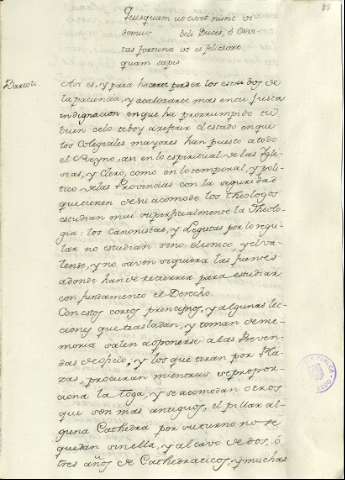 Daniel:
Asi es, y para hacerte perder los estribos de
la paciencia, y exaltarte mas en tu justa
indignacion en que ha prorrumpido tu
buen celo te voy a referir el estado en que
los Colegiales mayores han puesto a todo
el Reyno, asi en lo espiritual de las Igle-
sias, y Clero, como en lo temporal, y poli-
tico de las Provincias con la seguridad
que tienen de su acomodo. los Theologos
estudian mui superficialmente la Theolo-
gia: los Canonistas, y Legistas por lo regu-
lar no estudian sino
y no saven siquiera las fuentes
adonde han de recurrir para estudiar
con fundamento el Derecho.
Con estos cortos principios, y algunas lec-
ciones que trasladan, y toman de me-
moria salen a oponerse a las Preven-
das de oficio, y los que tiran por Pla-
zas, procuran mientras se propor-
ciona la toga, y se acomodan otros
que son mas antiguos, el pillar al-
guna Cathedra por su turno no se
quedan sin ella, y al cavo de dos, ó
tres años de Cathedraticos, y muchas